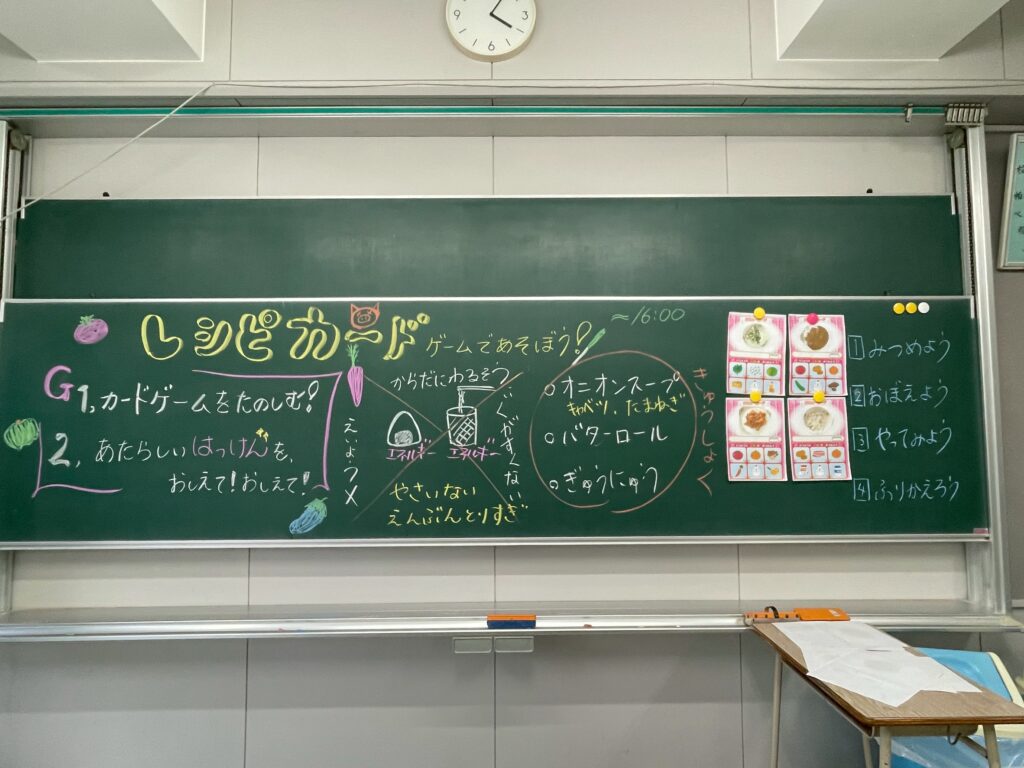 レシピカード
ゲームであそぼう!
~16:00
G1,カードゲームをたのしむ!
2, あたらしいはっけんを、
おしえて!おしえて!
えいようメ
からだにわるそう
ぐがすくない
エネルギー
エネルギー
やさいない
えんぶんとりすぎ
○オニオンスープ
キャベツ、たまねぎ
○バターロール
○ぎゅうにゅう
きゅうしょく
1 みつめよう
2 おぼえよう
3 やってみよう
4 ふりかえろう
9
3
6